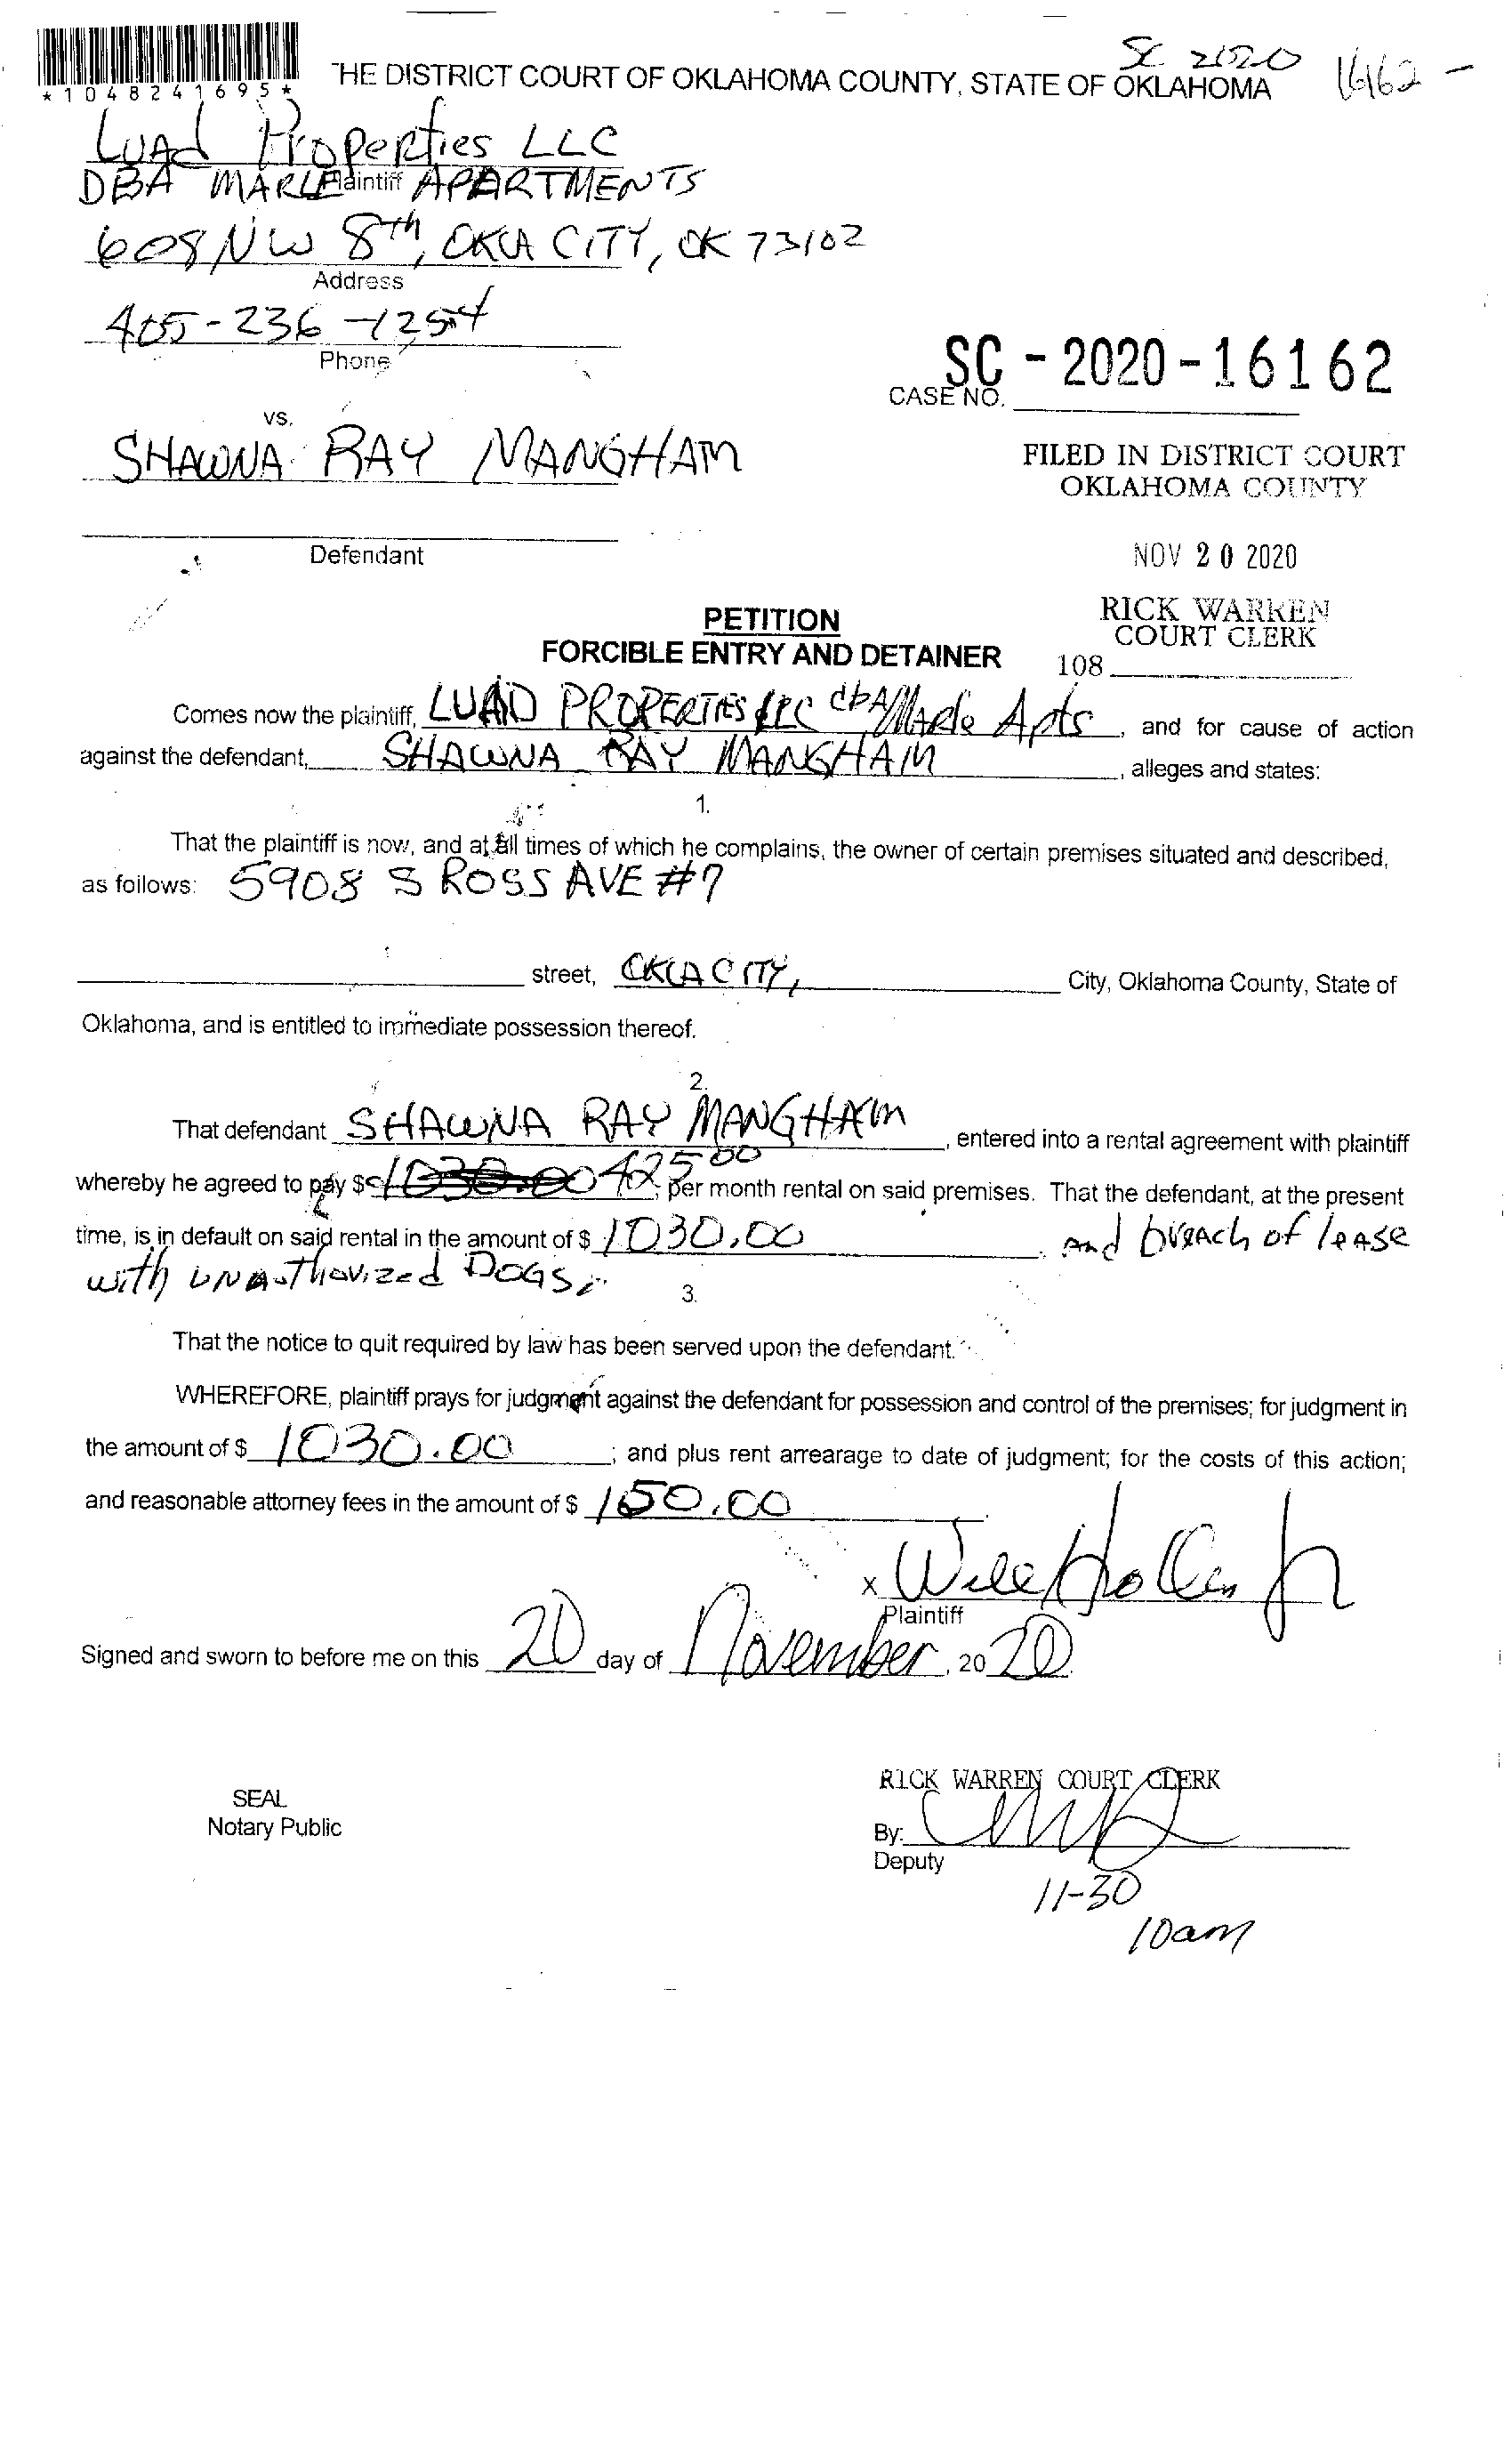 SC 2020 16162 -
*1048241695*
THE DISTRICT COURT OF OKLAHOMA COUNTY, STATE OF OKLAHOMA
LUAd Properties LLC
DBA MARLE APARTMENTS
Plaintiff
608 NW 8th, OKLA CITY, OK 73102
Address
405-236-1254
Phone
SC - 2020 - 16162
CASE NO.
vs.
SHAWNA RAY MANGHAM
FILED IN DISTRICT COURT
OKLAHOMA COUNTY
Defendant
NOV 20 2020
RICK WARREN
COURT CLERK
108
PETITION
FORCIBLE ENTRY AND DETAINER
Comes now the plaintiff, LUAD PROPERTIES LLC dbA/MARle Apts, and for cause of action
against the defendant, SHAWNA RAY MANGHAM, alleges and states:
1.
That the plaintiff is now, and at all times of which he complains, the owner of certain premises situated and described,
as follows: 5908 S ROSS AVE #7
street, OKLA CITY, City, Oklahoma County, State of
Oklahoma, and is entitled to immediate possession thereof.
2.
That defendant SHAWNA RAY MANGHAM, entered into a rental agreement with plaintiff
whereby he agreed to pay $ 1030.00 425 00, per month rental on said premises. That the defendant, at the present
time, is in default on said rental in the amount of $ 1030.00. And breach of leAse
with UNAuThorized DOGS.
3.
That the notice to quit required by law has been served upon the defendant.
WHEREFORE, plaintiff prays for judgment against the defendant for possession and control of the premises; for judgment in
the amount of $ 1030.00; and plus rent arrearage to date of judgment; for the costs of this action;
and reasonable attorney fees in the amount of $ 150.00
x Will Hollen Jr
Plaintiff
Signed and sworn to before me on this 20 day of November, 2020.
RICK WARREN COURT CLERK
SEAL
Notary Public
By:
Deputy
11-30
10am